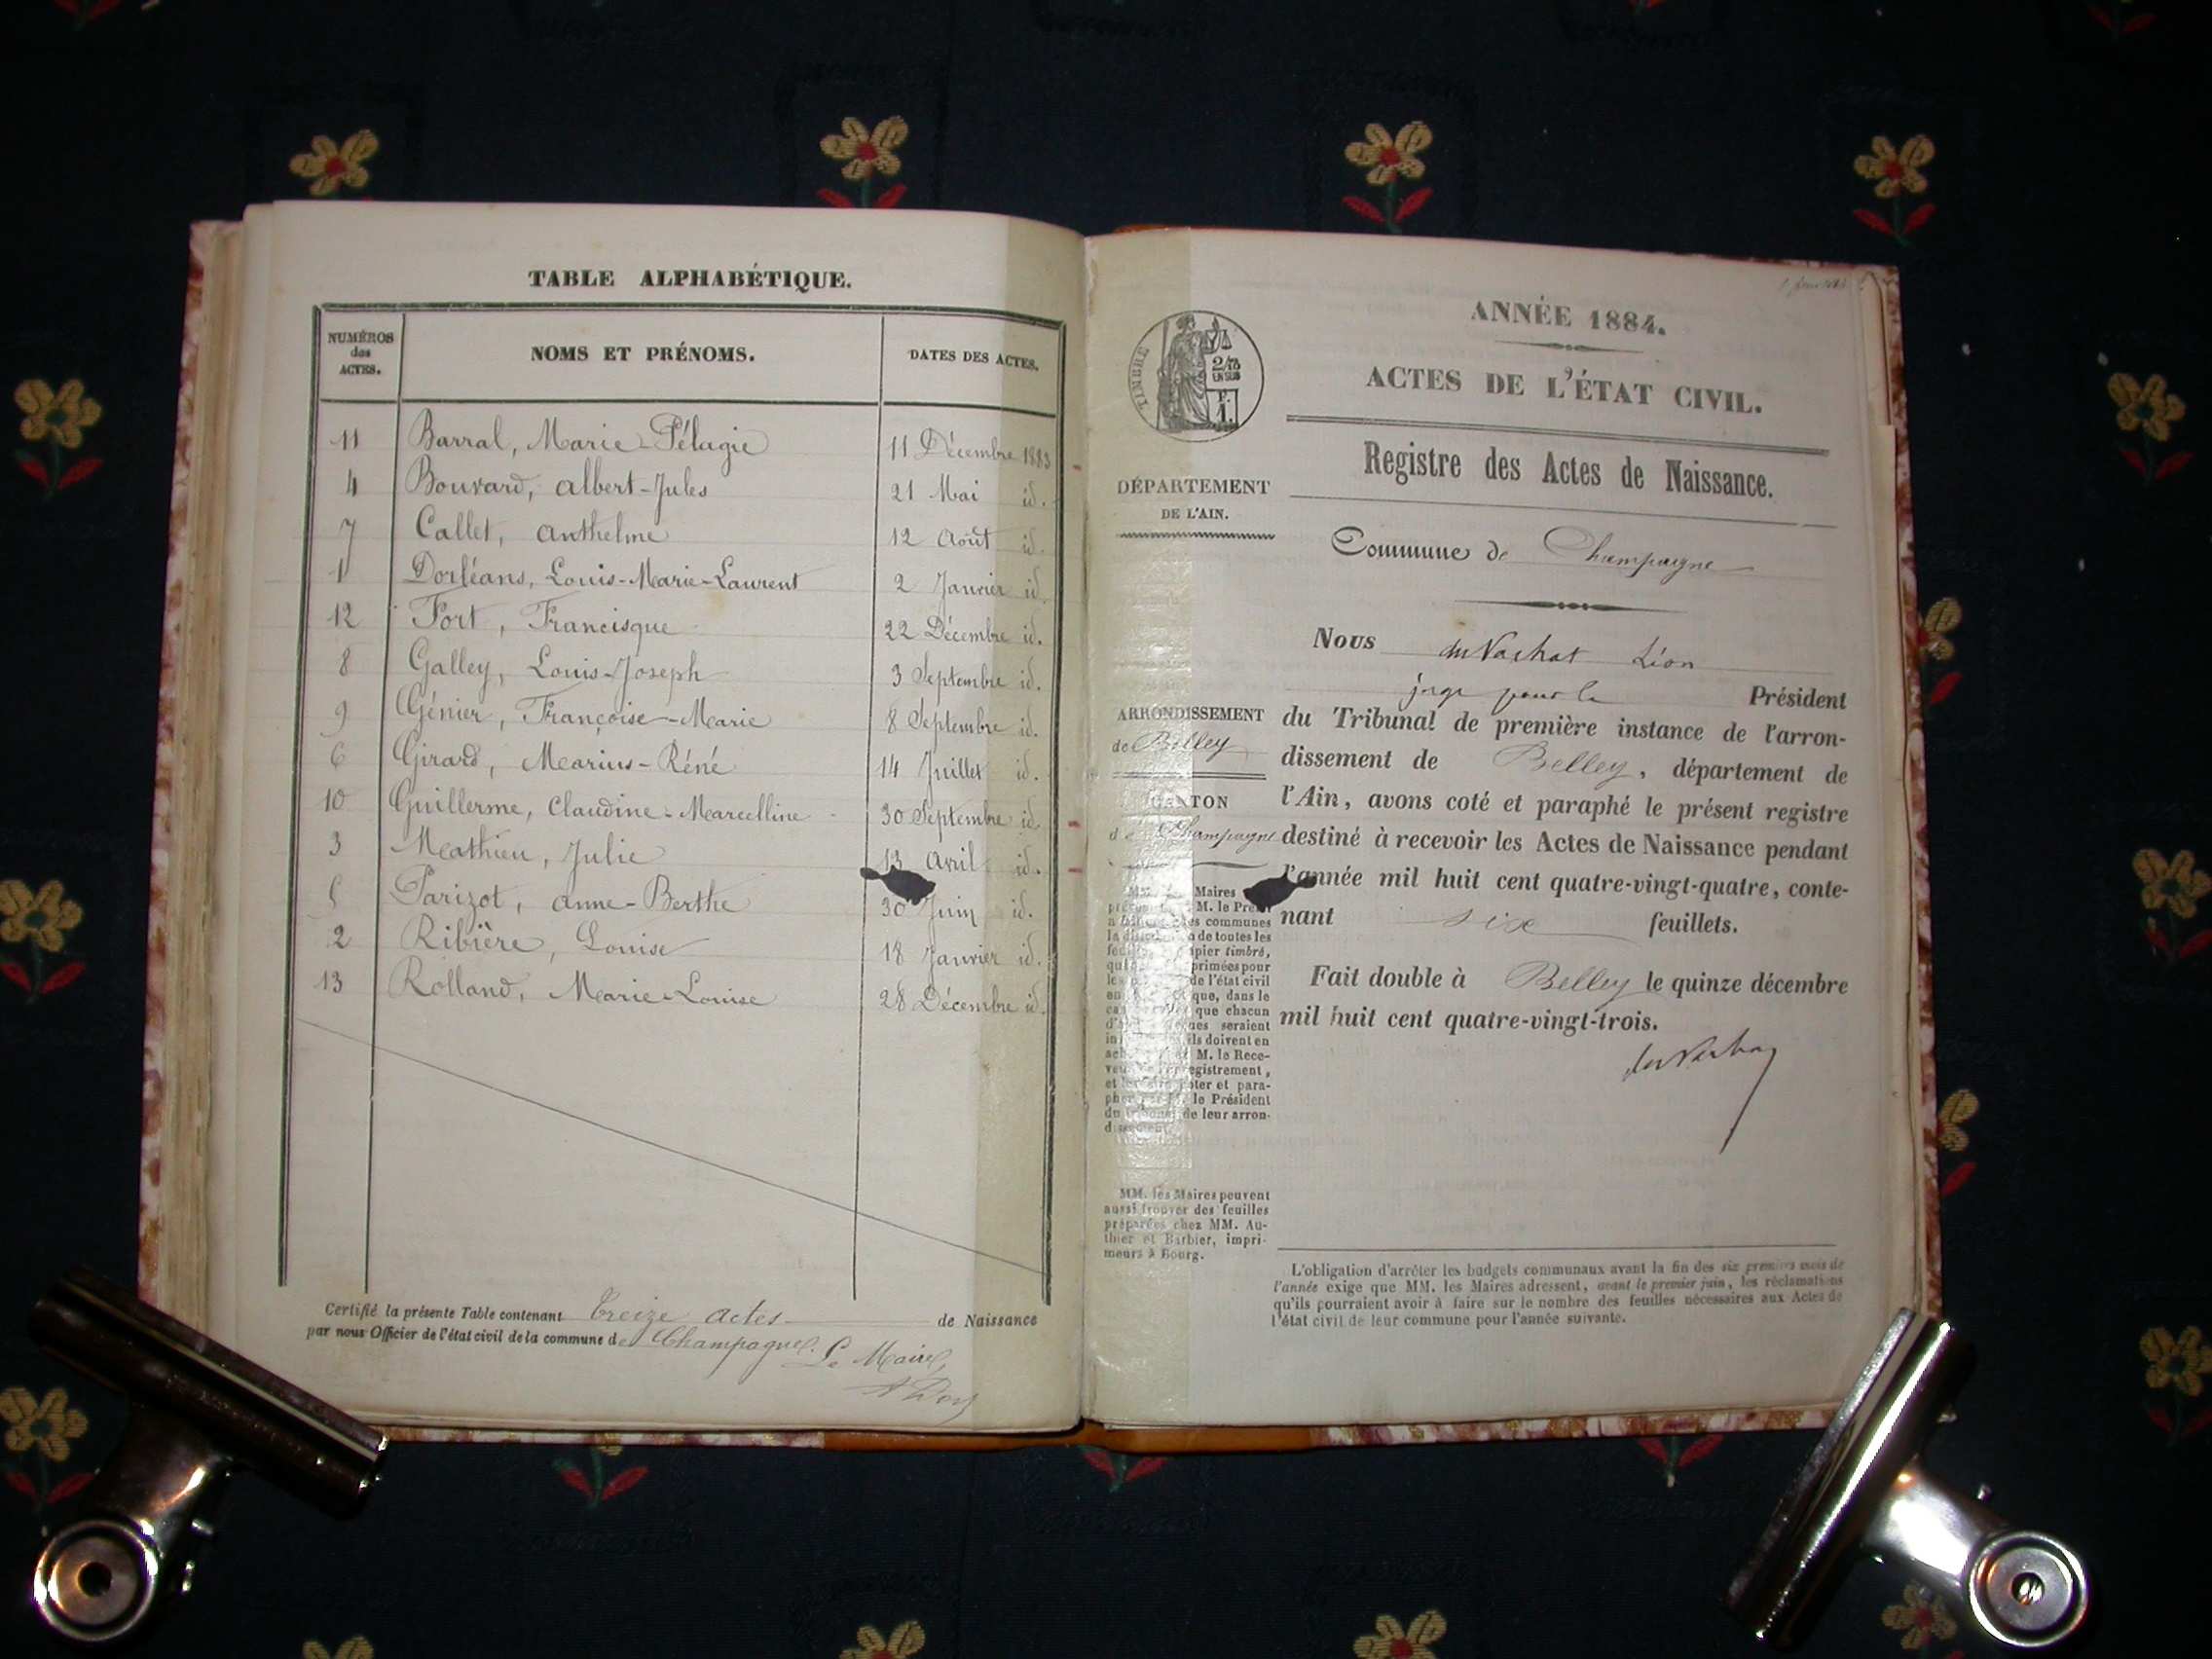 TABLE ALPHABÉTIQUE.
NUMÉROS
des
ACTES.
NOMS ET PRÉNOMS.
DATES DES ACTES.
11 Barral, Marie-Pélagie 11 Décembre 1883
4 Bouvard, Albert-Jules 21 Mai id.
7 Callet, Anthelme 12 Août id.
1 Dorléans, Louis-Marie-Laurent 2 Janvier id.
12 Fort, Francisque 22 Décembre id.
8 Galley, Louis-Joseph 3 Septembre id.
9 Génier, Françoise-Marie 8 Septembre id.
6 Girard, Marius-Réné 14 Juillet id.
10 Guillerme, Claudine-Marcelline 30 Septembre id.
3 Mathieu, Julie 13 Avril id.
5 Parizot, Anne-Berthe 30 Juin id.
2 Ribière, Louise 18 Janvier id.
13 Rolland, Marie-Louise 28 Décembre id.
Certifié la présente Table contenant treize actes de Naissance
par nous Officier de l'état civil de la commune de Champagne. Le Maire,
ANNÉE 1884.
ACTES DE L'ÉTAT CIVIL.
Registre des Actes de Naissance.
Commune de Champagne
Nous du Vachat Léon
juge pour le Président
du Tribunal de première instance de l'arron-
dissement de Belley, département de
l'Ain, avons coté et paraphé le présent registre
destiné à recevoir les Actes de Naissance pendant
l'année mil huit cent quatre-vingt-quatre, conte-
nant six feuillets.
Fait double à Belley le quinze décembre
mil huit cent quatre-vingt-trois.
du Vachat
TIMBRE
2/10
EN SUS
DÉPARTEMENT
DE L'AIN.
ARRONDISSEMENT
de Belley
CANTON
de Champagne
Maires
M. le Préfet
communes
de toutes les
papier timbré,
imprimées pour
de l'état civil
que, dans le
que chacun
seraient
ils doivent en
M. le Rece-
enregistrement,
et coter et para-
le Président
de leur arron-
MM. les Maires peuvent
aussi trouver des feuilles
préparées chez MM. Au-
thier et Barbier, impri-
meurs à Bourg.
L'obligation d'arrêter les budgets communaux avant la fin des six premiers mois de
l'année exige que MM. les Maires adressent, avant le premier juin, les réclamations
qu'ils pourraient avoir à faire sur le nombre des feuilles nécessaires aux Actes de
l'état civil de leur commune pour l'année suivante.